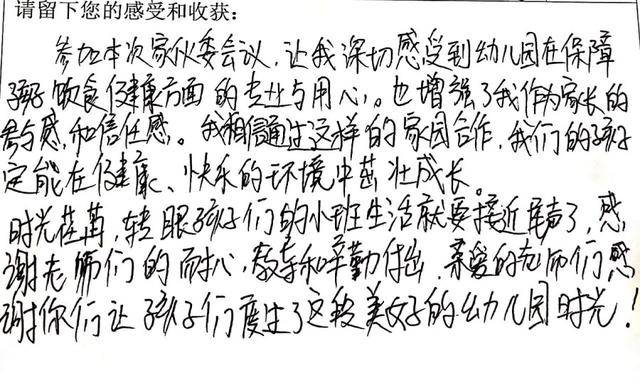 请留下您的感受和收获：
参加本次家伙委会议，让我深切感受到幼儿园在保障
孩子饮食健康方面的专业与用心。也增强了我作为家长的
参与感和信任感。我相信通过这样的家园合作，我们的孩子
定能在健康、快乐的环境中茁壮成长。
时光荏苒，转眼孩子们的小班生活就要接近尾声了，感
谢老师们的耐心，教导和辛勤付出，亲爱的老师们，感
谢你们让孩子们度过了这段美好的幼儿园时光！